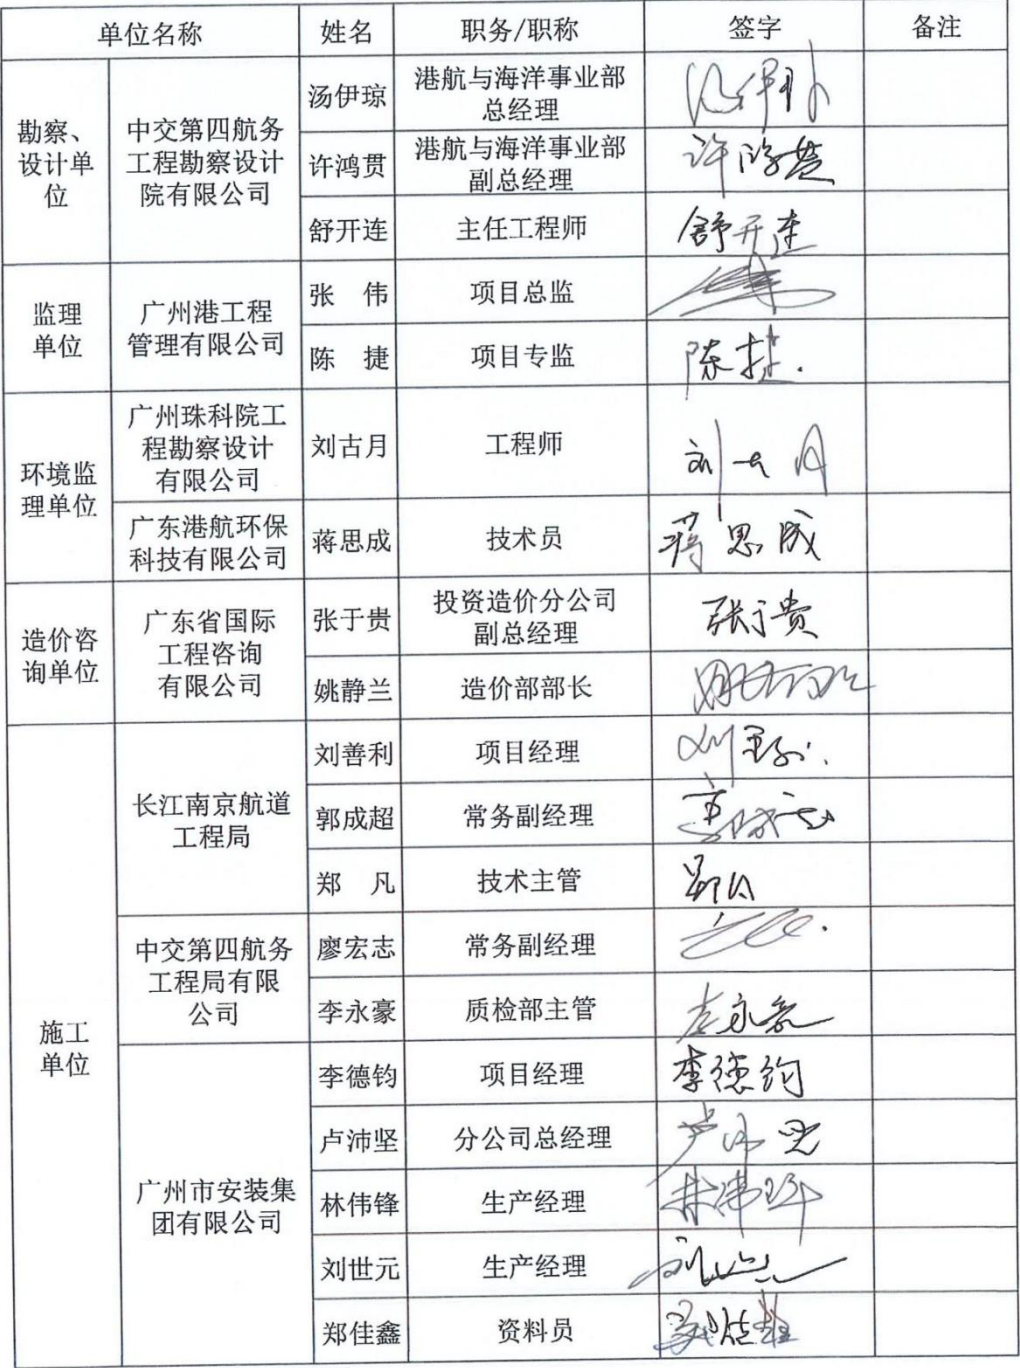 单位名称 姓名 职务/职称 签字 备注
勘察、
设计单
位
中交第四航务
工程勘察设计
院有限公司
汤伊琼
港航与海洋事业部
总经理
许鸿贯
港航与海洋事业部
副总经理
许鸿贯
舒开连
主任工程师
舒开连
监理
单位
广州港工程
管理有限公司
张 伟
项目总监
陈 捷
项目专监
陈捷.
环境监
理单位
广州珠科院工
程勘察设计
有限公司
刘古月
工程师
刘古月
广东港航环保
科技有限公司
蒋思成
技术员
蒋思成
造价咨
询单位
广东省国际
工程咨询
有限公司
张于贵
投资造价分公司
副总经理
张于贵
姚静兰
造价部部长
施工
单位
长江南京航道
工程局
刘善利
项目经理
郭成超
常务副经理
郑 凡
技术主管
中交第四航务
工程局有限
公司
廖宏志
常务副经理
李永豪
质检部主管
李永豪
广州市安装集
团有限公司
李德钧
项目经理
李德钧
卢沛坚
分公司总经理
林伟锋
生产经理
林伟锋
刘世元
生产经理
郑佳鑫
资料员